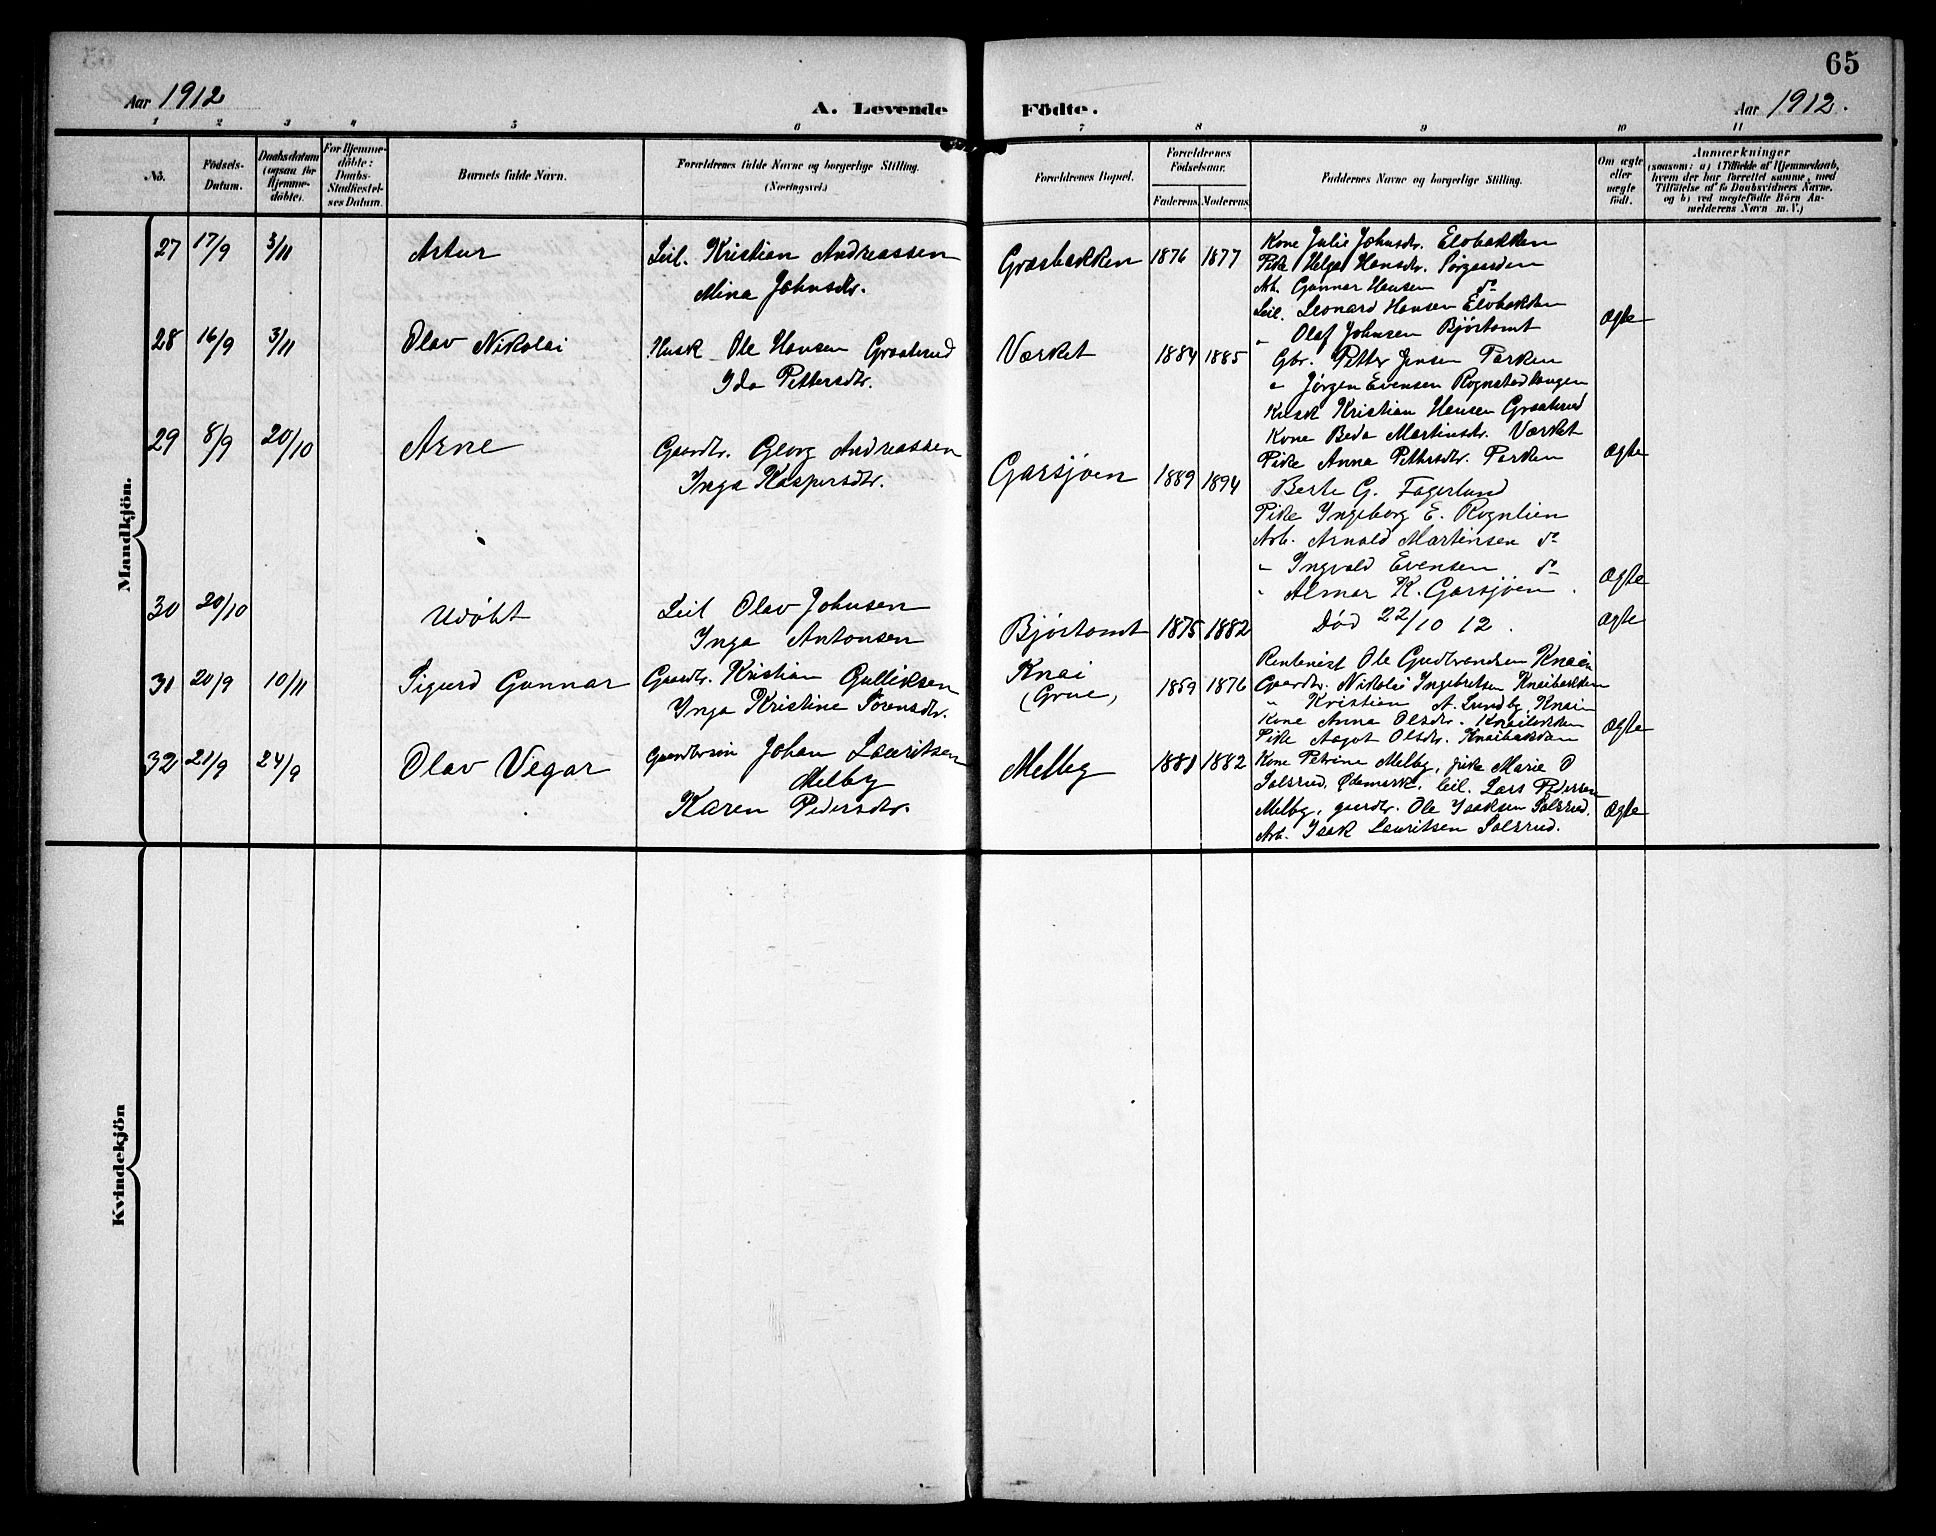 65
Aar 1912
A. Levende Födte.
Aar 1912.
1 2 3 4 5 6 7 8 9 10 11
No.
Födsels-Datum.
Daabsdatum (ogsaa for Hjemme-döbte).
For Hjemme-döbte: Daabs-Stadfæstel-ses Datum.
Barnets fulde Navn.
Forældrenes fulde Navne og borgerlige Stilling.
(Næringsvei.)
Forældrenes Bopæl.
Forældrenes Födselsaar.
Faderens. Moderens.
Faddernes Navne og borgerlige Stilling.
Om ægte eller uægte födt.
Anmærkninger
(saasom: a) i Tilfælde af Hjemmedaab,
hvem der har forrettet samme, med
Tilföielse af to Daabsvidners Navne.
og b) ved uægtefödte Börn An-
melderens Navn m. V.)
Mandkjön.
27 17/9 3/11 Artur
Leil. Kristian Andreassen
Mina Johnsdtr.
Græsbakken 1876 1877
Kone Julie Johnsdtr. Elvbakken
Pike Helga Hansdtr. Sørgaarden
Arb. Gunnar Hansen do
Leil. Leonard Hansen Elvbakken
" Olaf Johnsen Bjørtomt
Ægte
28 16/9 3/11 Olav Nikolai
Husk Ole Hansen Graaterud
Ida Pettersdtr.
Værket 1884 1885
Gbr. Petter Jensen Parken
" Jørgen Evensen Rognstadhaugen
Kusk Kristian Hansen Graaterud
Kone Beda Martinsdtr. Værket
Pike Anna Pettersdtr. Parken
Ægte
29 8/9 20/10 Arne
Gaardbr. Georg Andreassen
Inga Kaspersdtr.
Garsjøen 1889 1894
Berte G. Fagerlund
Pike Ingeborg E. Rognlien
Arb. Arnold Martinsen do
" Ingvald Evensen do
" Almar K. Garsjøen.
Ægte
30 20/10 Udøbt
Leil Olav Johnsen
Inga Antonsen
Bjørtomt 1875 1882
Død 22/10 12.
Ægte
31 20/9 10/11 Sigurd Gunnar
Gaardbr. Kristian Gulliksen
Inga Kristine Sørensdtr.
Knai
(Grue)
1869 1876
Rentenist Ole Gudbrandsen Knain
Gaardbr. Nikolai Ingebretsen Knaibakken
" Kristian A. Lundby, Knain
Kone Anna Olsdtr. Knaibakken
Pike Aagot Olsdtr. Knaibakken
Ægte
32 21/9 24/9 Olav Vegar
Gaardbrsøn Johan Lauritsen
Melby
Karen Pedersdtr.
Melby 1881 1882
Kone Petrine Melby, pike Marie O
Solsrud, Ødemark, leil. Lars Pedersen
Melby, gaardbr. Ole Isaksen Solsrud.
Arb. Isak Lauritsen Solsrud.
Ægte
Kvindekjön